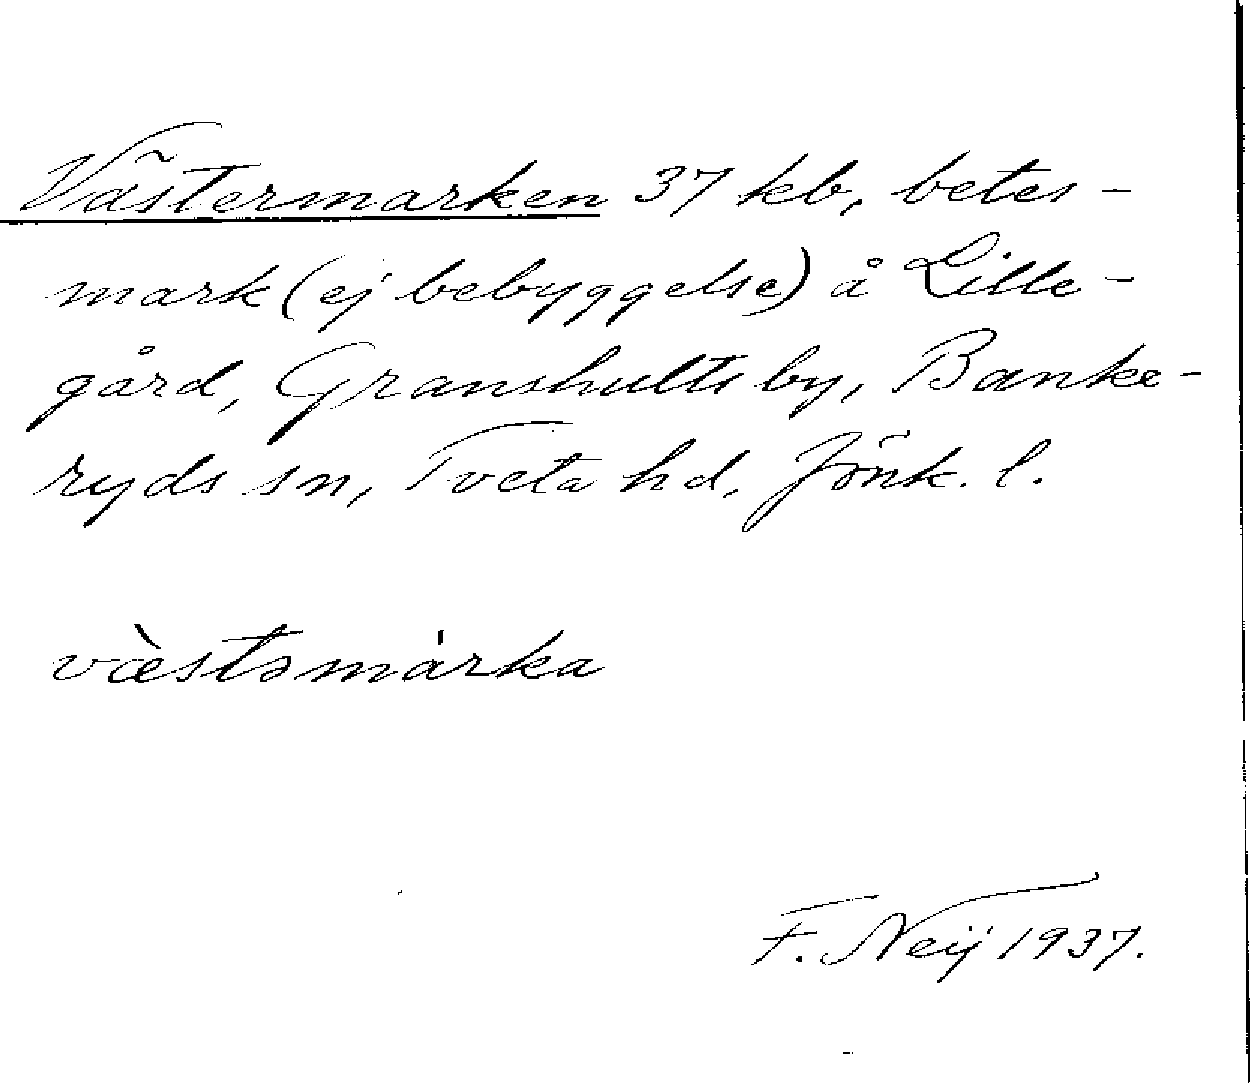 Västermarken 37 kb, betes-
mark (ej bebyggelse) å Lille-
gård, Granshults by, Banke-
ryds sn, Tveta hd, Jönk. l.
væ̀stəmárka
F. Neij 1937.